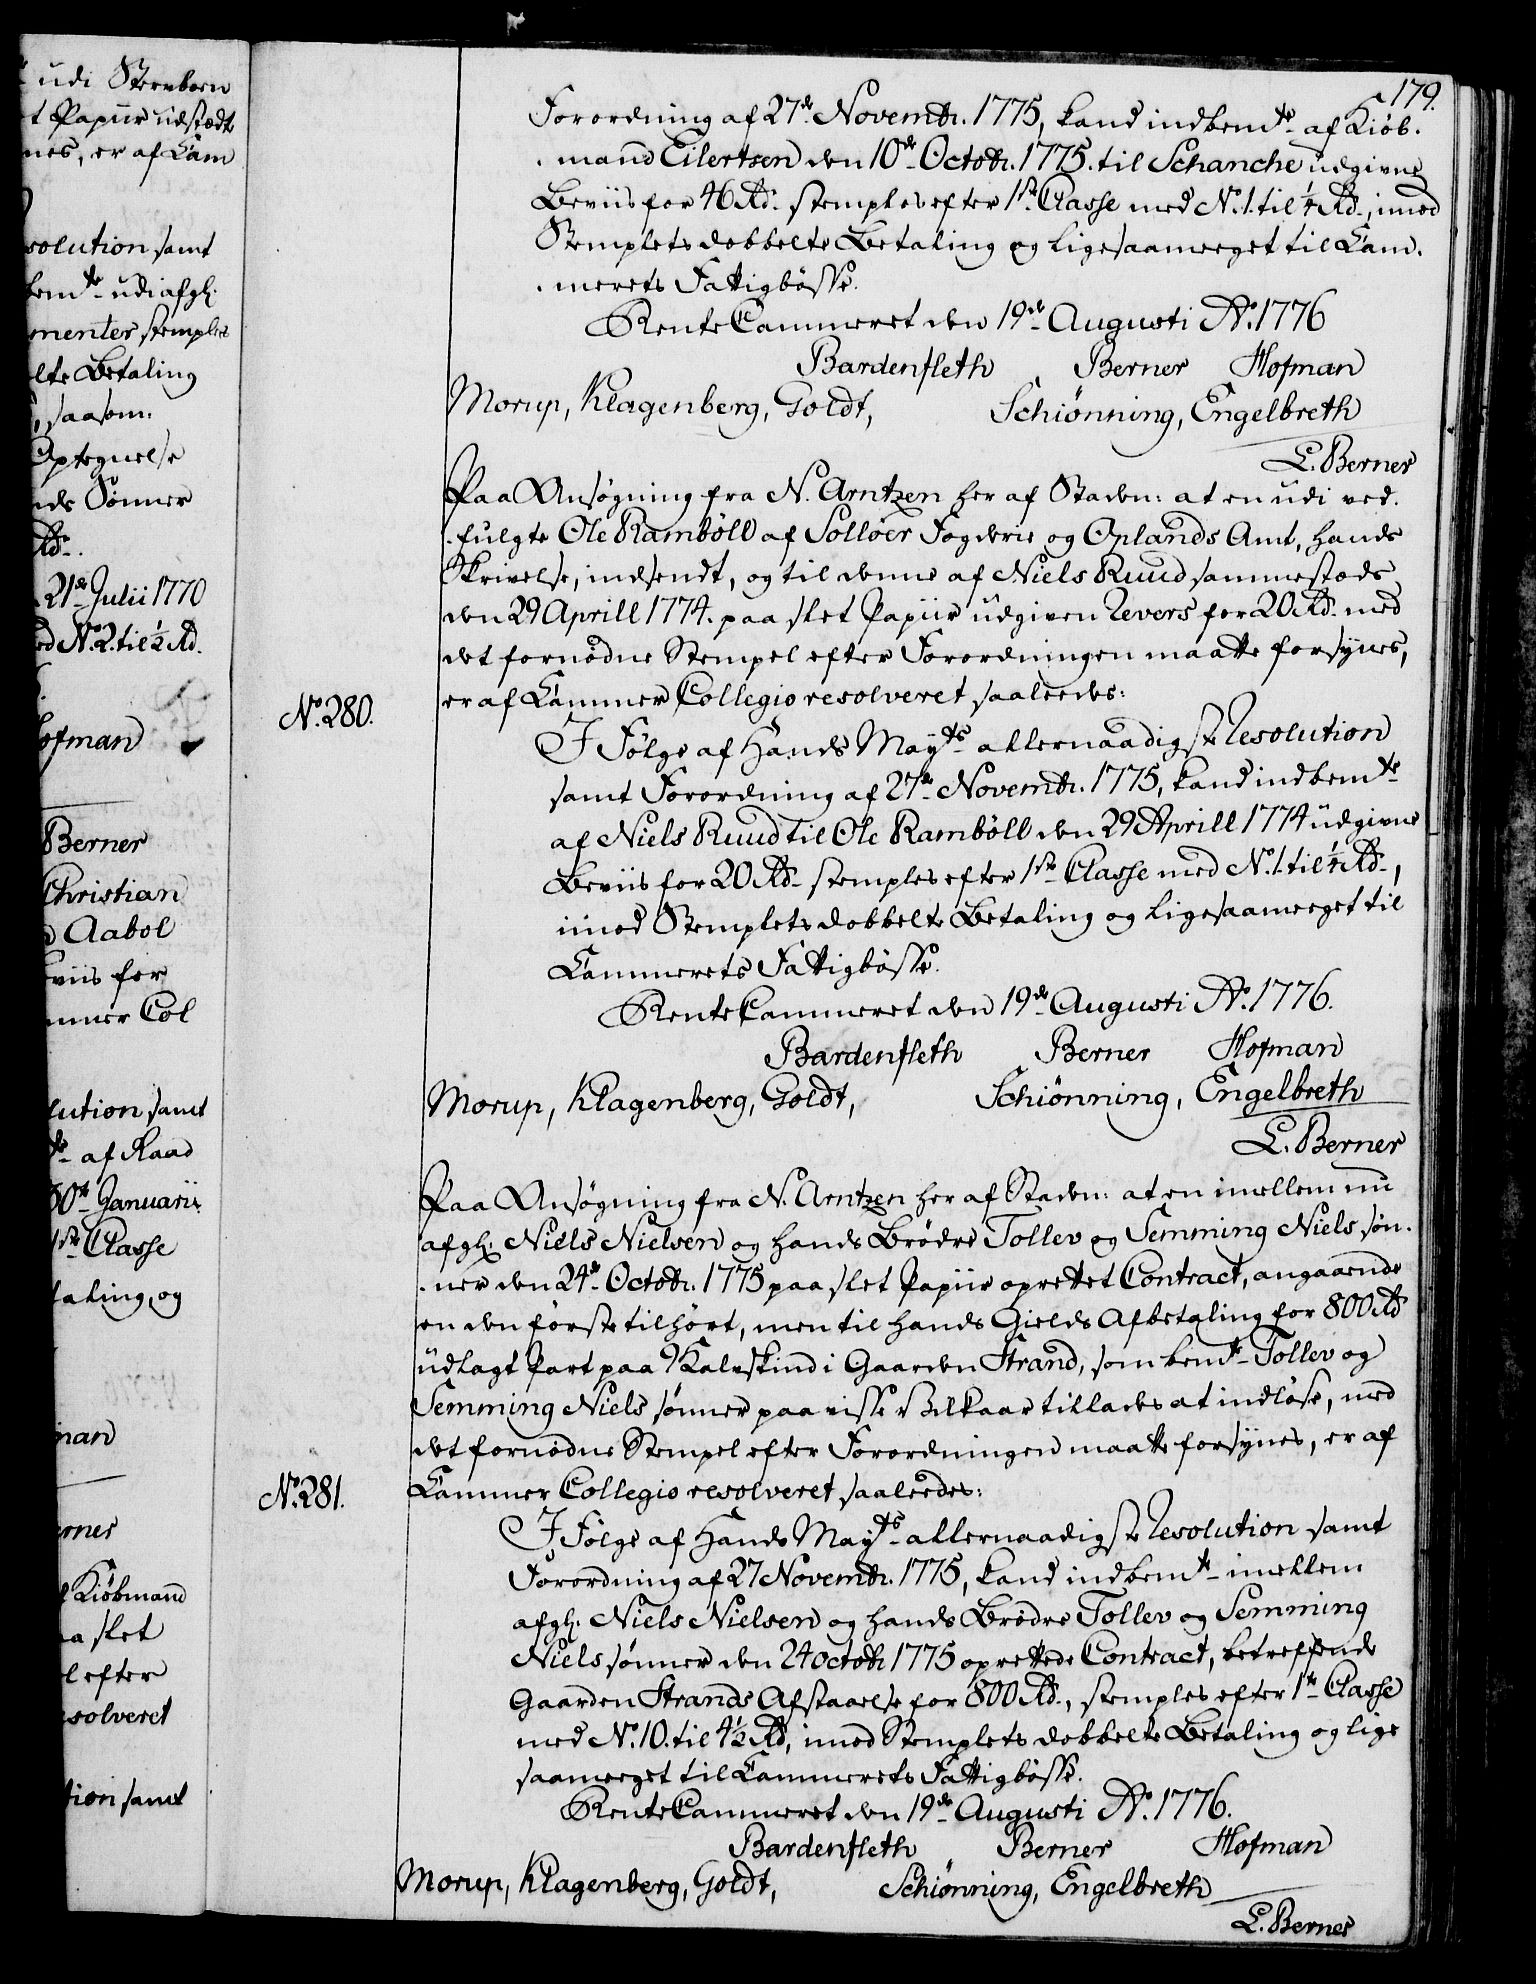 udi Stervboen
t Papiir udstædt
nes, er af Cam
solution samt
bemte udi afgl:
menter stemples
elte Betaling
, saasom:
Optegnelse
nds Sönner
Rd.
21de Julii 1770
ed No. 2. til ½ Rd.
Hofman
Berner
Christian
Aabol
eviis for
mmer Col
lution samt
te af Raad
30te Januarii
1ste Classe
taling, og
man
erner
Kiöbmand
aa slet
el efter
esolveret
tion samt
179.
Forordning af 27de Novembr. 1775, kand indbemte af Kiöb.
mand Eilertsen den 10de Octobr. 1775. til Schanche udgivne
Beviis for 46 Rd. stemples efter 1ste Classe med No. 1. til ¼ Rd., imod
Stemplets dobbelte Betaling og ligesaameeget til Cam.
merets Fattigbösse.
Rente Cammeret den 19de Augusti Ao. 1776
Bardenfleth Berner Hofman
Morup, Klagenberg, Goldt, Schiönning, Engelbreth
L. Berner
Paa Ansögning fra N. Arntzen her af Staden: at en udi ved.
fulgte Ole Ramböll af Solloer Fogderie og Oplands Amt, hands
Skrivelse, indsendt, og til denne af Niels Ruud sammestæds
den 29 Aprill 1774. paa slet Papiir udgiven Revers for 20 Rd. med
det fornödne Stempel efter Forordningen maatte forsynes,
er af Cammer Collegio resolveret saaleedes:
No. 280.
I Fölge af Hands Mayts allernaadigste Resolution
samt Forordning af 27de Novembr. 1775, kand indbemte
af Niels Ruud til Ole Ramböll den 29 Aprill 1774 udgivne
Beviis for 20 Rd. stemples efter 1ste Classe med No. 1. til ¼ Rd.,
imod Stemplets dobbelte Betaling og ligesaameeget til
Cammerets Fattigbösse.
Rente Cammeret den 19de Augusti Ao. 1776.
Bardenfleth Berner Hofman
Morup, Klagenberg, Goldt, Schiönning, Engelbreth
L. Berner
Paa Ansögning fra N. Arntzen her af Staden: at en imellem nu
afgl: Niels Nielsen og hands Brödre Tollev og Semming Niels sön.
ner den 24de Octobr. 1775 paa slet Papiir oprettet Contract, angaaende
en den förste tilhört, men til hands Gields Afbetaling for 800 Rd
udlagt Part paa 9 Kalvskind i Gaarden Strand, som bemte Tollev og
Semming Niels sönner paa visse Vilkaar tillades at indlöse, med
det fornödne Stempel efter Forordningen maatte forsynes, er af
Cammer Collegio resolveret saaleedes:
No. 281.
I Fölge af Hands Mayts allernaadigste Resolution samt
Forordning af 27 Novembr. 1775, kand indbemte imellem
afgl: Niels Nielsen og hands Brödre Tollev og Semming
Niels sönner den 24 octobr 1775 oprettede Contract, betreffende
Gaarden Strands Afstaaelse for 800 Rd., stemples efter 1ste Classe
med No. 10. til 4½ Rd, imod Stemplets dobbelte Betaling og lige
saameeget til Cammerets Fattigbösse.
Rente Cammeret den 19de Augusti Ao. 1776.
Bardenfleth Berner Hofman
Morup, Klagenberg, Goldt, Schiönning, Engelbreth
L. Berner